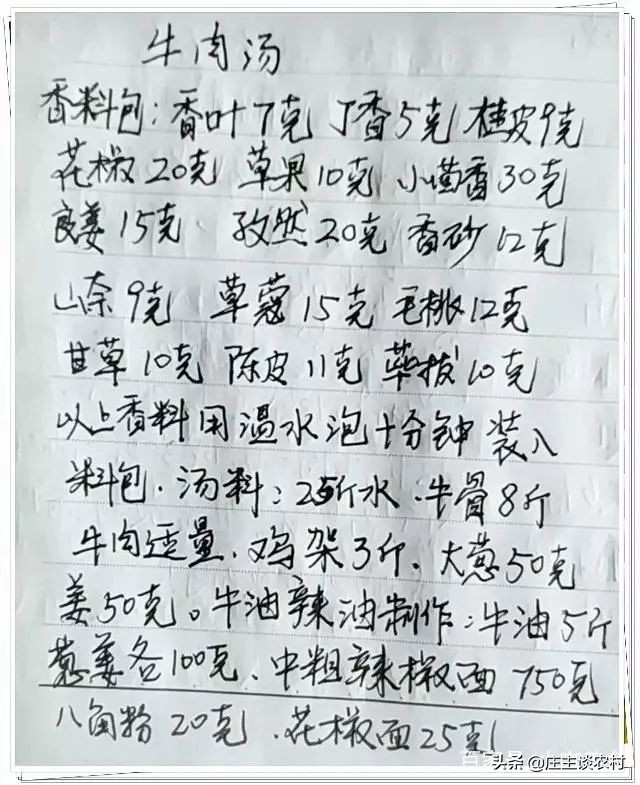 牛肉汤
香料包:香叶7克 丁香5克 桂皮9克
花椒20克 草果10克 小茴香30克
良姜15克、孜然20克 香砂12克
山奈9克 草蔻15克 毛桃12克
甘草10克 陈皮11克 荜拨10克
以上香料用温水泡十分钟 装入
料包.汤料:25斤水.牛骨8斤
牛肉适量.鸡架3斤.大葱50克
姜50克。牛油辣油制作:牛油5斤
葱姜各100克、中粗辣椒面750克
八角粉20克.花椒面25克
头条 @庄主谈农村